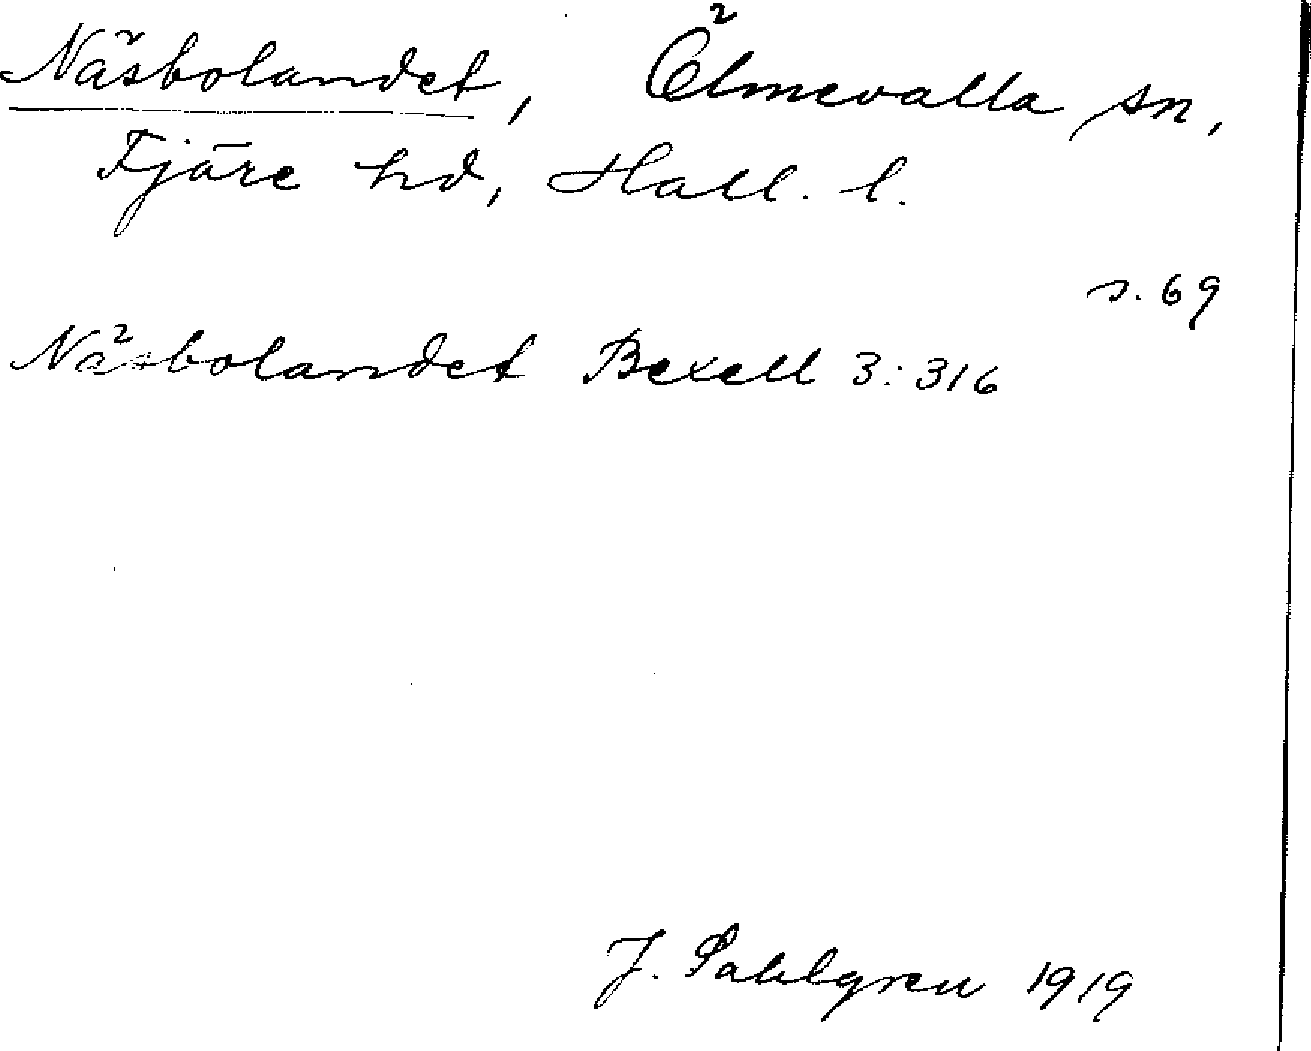 Näsbolandet, Ölmevalla sn,
Fjäre hd, Hall. l.
s. 69
Näsbolandet Bexell 3:316
J. Sahlgren 1919